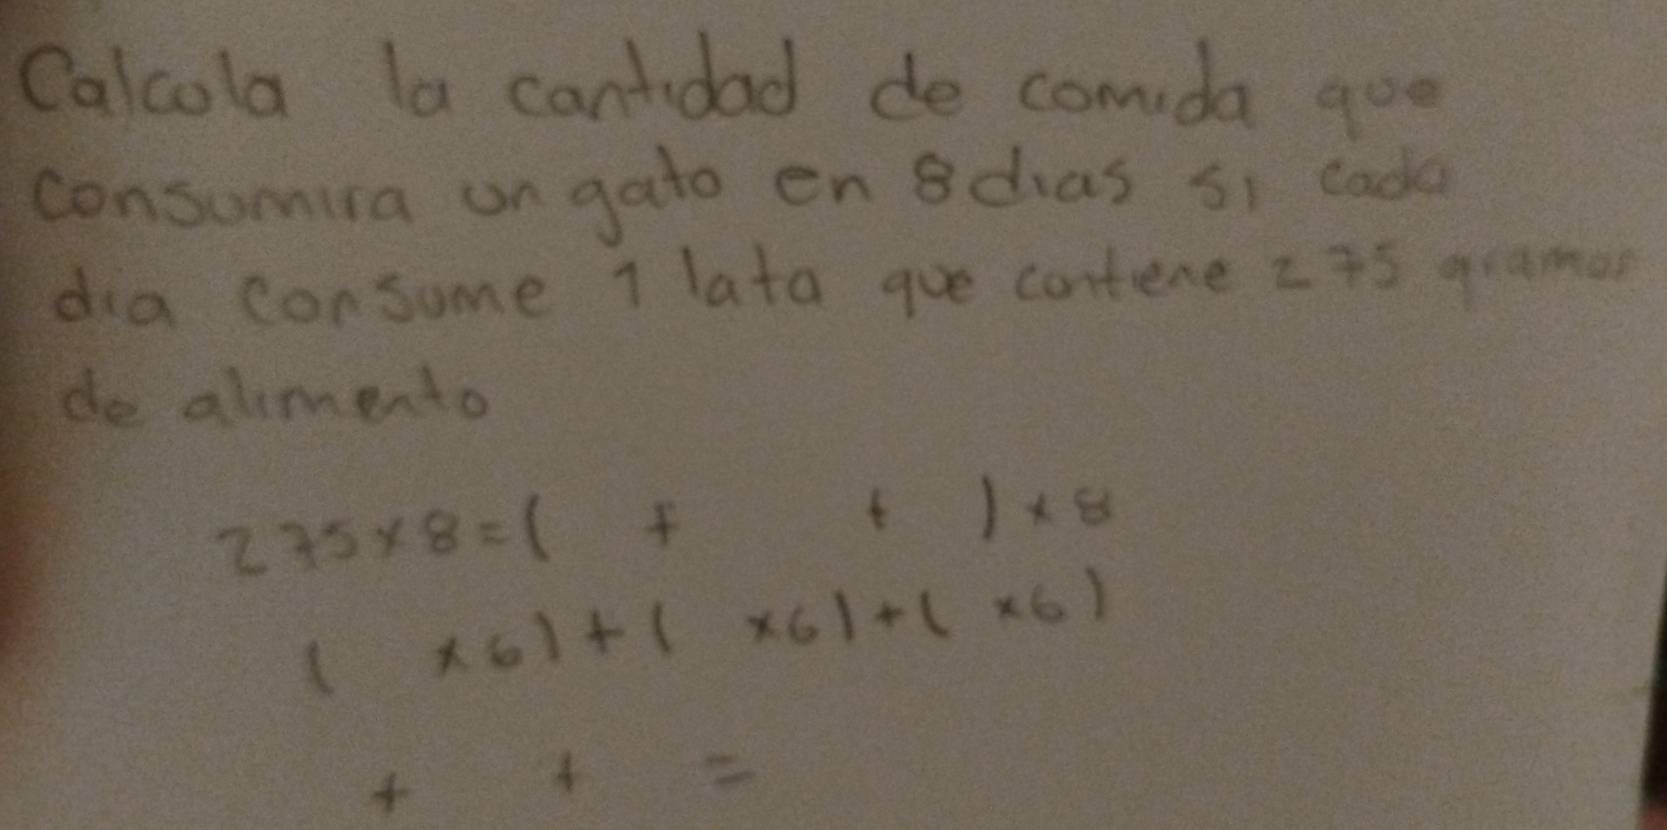 Calcula la cantidad de comida que
consumira un gato en 8 dias si cada
dia consume 1 lata que contiene 275 gramos
de alimento
275 x 8 = ( + + ) x 8
( x 6) + ( x 6) + ( x 6)
+ + =